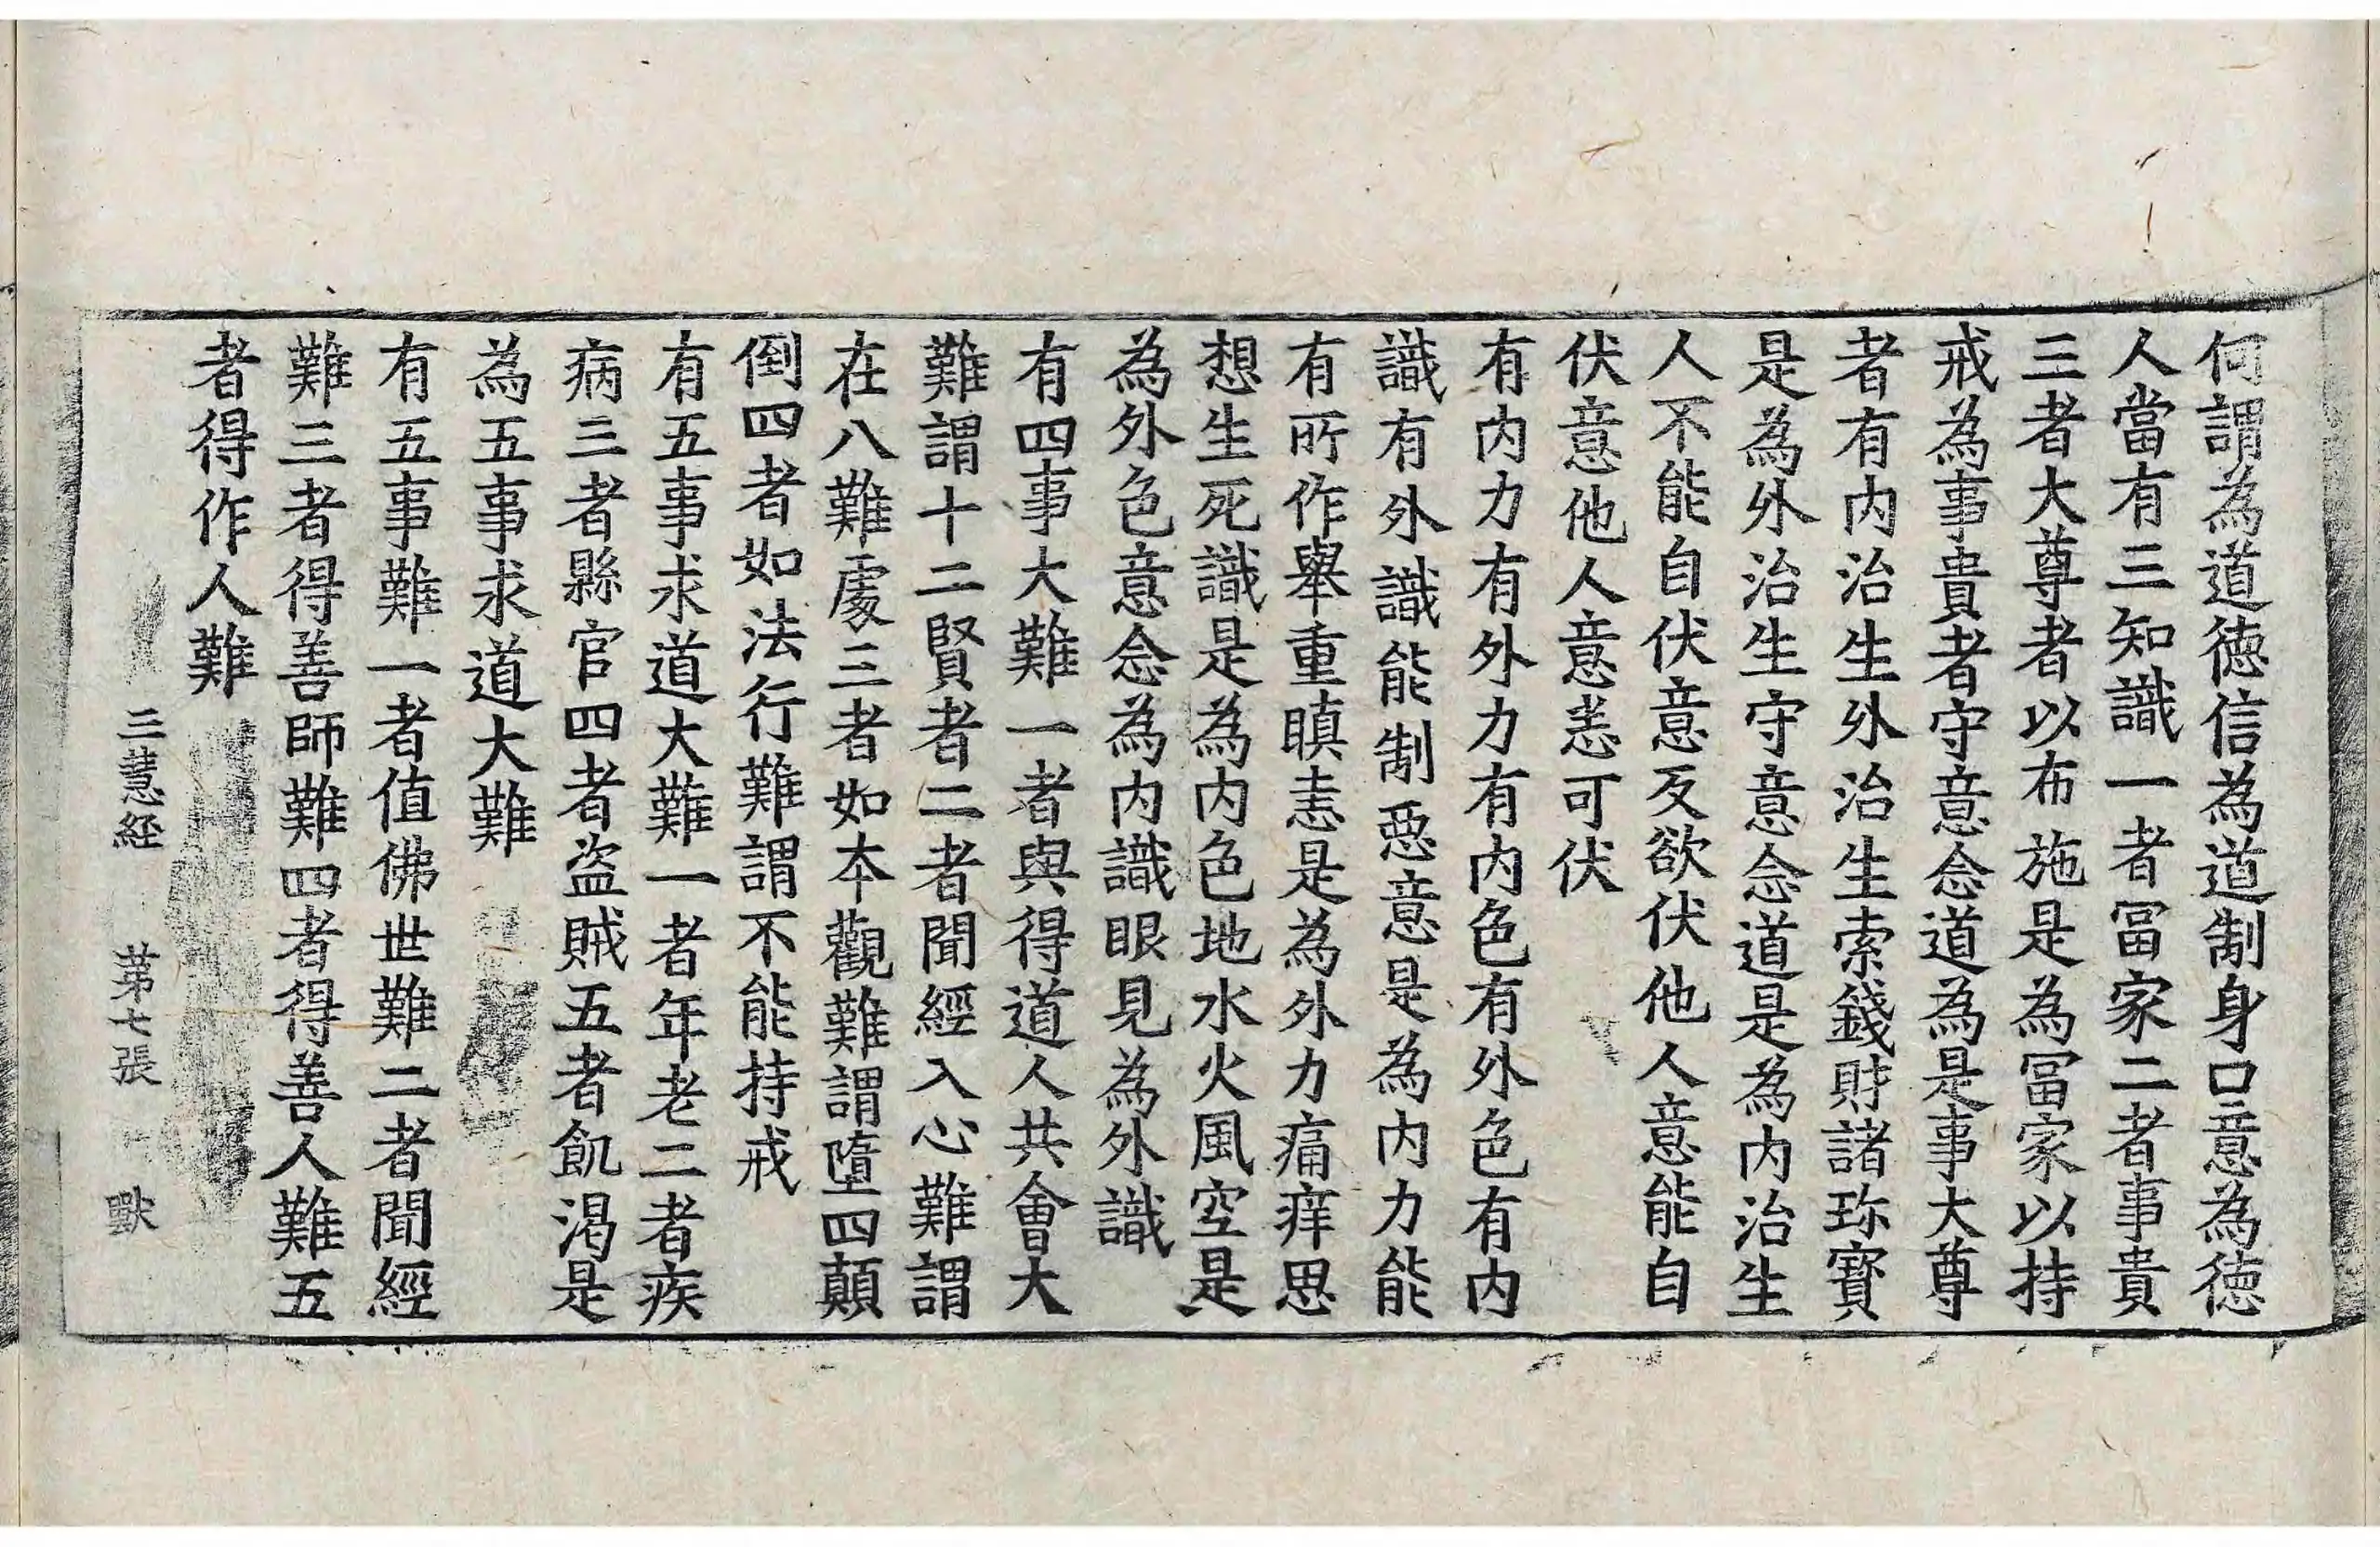 何謂為道徳信為道制身口意為徳
人當有三知識一者冨家二者事貴
三者大尊者以布施是為冨家以持
戒為事貴者守意念道為是事大尊
者有内治生外治生索錢財諸珎寳
是為外治生守意念道是為内治生
人不能自伏意反欲伏他人意能自
伏意他人意悉可伏
有内力有外力有内色有外色有内
識有外識能制惡意是為内力能
有所作舉重瞋恚是為外力痛痒思
想生死識是為内色地水火風空是
為外色意念為内識眼見為外識
有四事大難一者與得道人共會大
難謂十二賢者二者聞經入心難謂
在八難處三者如本觀難謂墮四顛
倒四者如法行難謂不能持戒
有五事求道大難一者年老二者疾
病三者縣官四者盗賊五者飢渇是
為五事求道大難
有五事難一者值佛世難二者聞經
難三者得善師難四者得善人難五
者得作人難
三慧経 第七張 獸